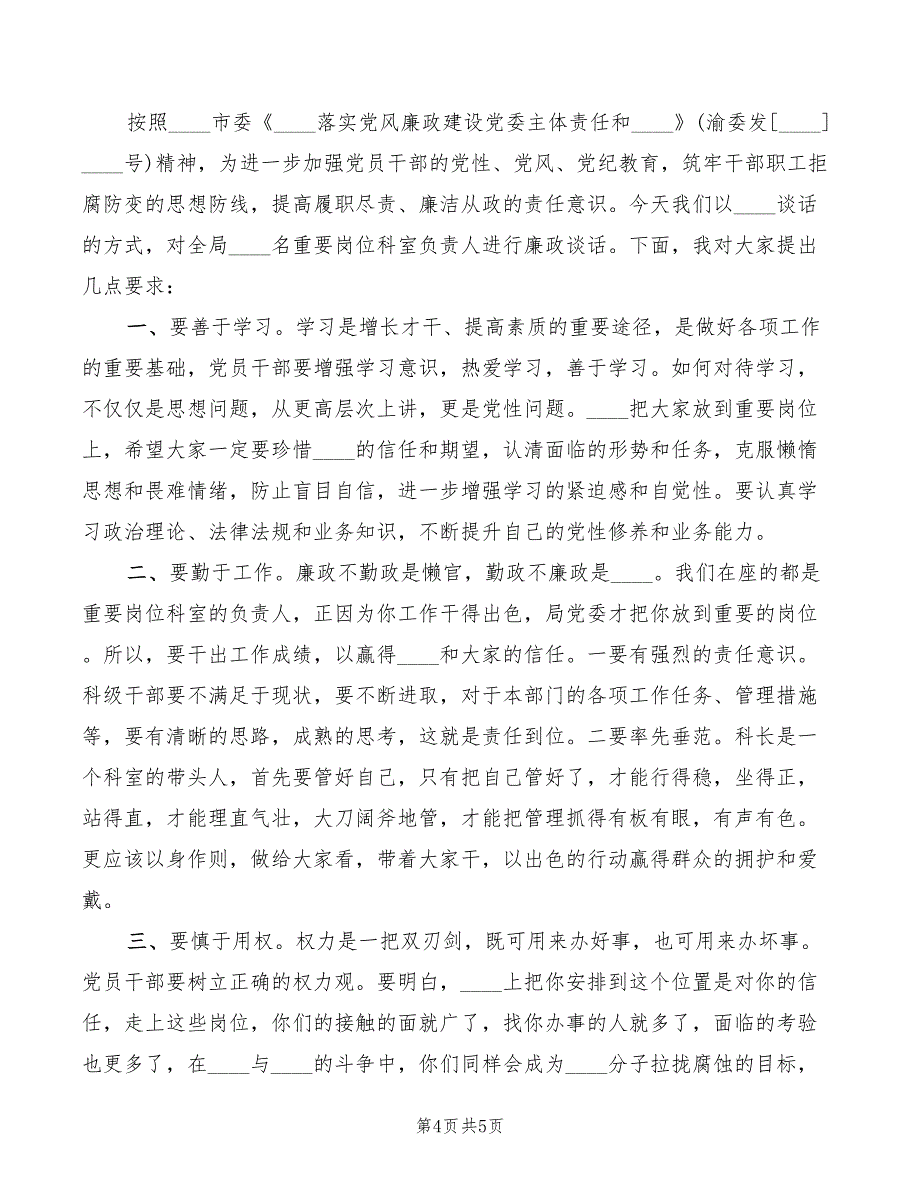 按照____市委《____落实党风廉政建设党委主体责任和____》(渝委发[____]
____号)精神，为进一步加强党员干部的党性、党风、党纪教育，筑牢干部职工拒
腐防变的思想防线，提高履职尽责、廉洁从政的责任意识。今天我们以____谈话
的方式，对全局____名重要岗位科室负责人进行廉政谈话。下面，我对大家提出
几点要求：
一、要善于学习。学习是增长才干、提高素质的重要途径，是做好各项工作
的重要基础，党员干部要增强学习意识，热爱学习，善于学习。如何对待学习，
不仅仅是思想问题，从更高层次上讲，更是党性问题。____把大家放到重要岗位
上，希望大家一定要珍惜____的信任和期望，认清面临的形势和任务，克服懒惰
思想和畏难情绪，防止盲目自信，进一步增强学习的紧迫感和自觉性。要认真学
习政治理论、法律法规和业务知识，不断提升自己的党性修养和业务能力。
二、要勤于工作。廉政不勤政是懒官，勤政不廉政是____。我们在座的都是
重要岗位科室的负责人，正因为你工作干得出色，局党委才把你放到重要的岗位
。所以，要干出工作成绩，以赢得____和大家的信任。一要有强烈的责任意识。
科级干部要不满足于现状，要不断进取，对于本部门的各项工作任务、管理措施
等，要有清晰的思路，成熟的思考，这就是责任到位。二要率先垂范。科长是一
个科室的带头人，首先要管好自己，只有把自己管好了，才能行得稳，坐得正，
站得直，才能理直气壮，大刀阔斧地管，才能把管理抓得有板有眼，有声有色。
更应该以身作则，做给大家看，带着大家干，以出色的行动赢得群众的拥护和爱
戴。
三、要慎于用权。权力是一把双刃剑，既可用来办好事，也可用来办坏事。
党员干部要树立正确的权力观。要明白，____上把你安排到这个位置是对你的信
任，走上这些岗位，你们的接触的面就广了，找你办事的人就多了，面临的考验
也更多了，在____与____的斗争中，你们同样会成为____分子拉拢腐蚀的目标，
第4页 共5页